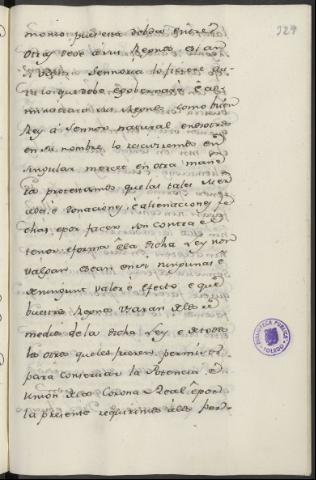 329
monio, puesta debda fuere
otras deve a sus Regnos est an
Señoria lo ficiere au
lo que debe egobernare e al
Regne como buen
Rey a Señor natural en otro
en su nombre lo recivremos en
singular merced en otra mane
ra protestamos que las tales mer
cedes e donaciones, e alienaciones fe
chas, e por facer son contra e
tenor e forma de la dicha Ley non
valgan e sean en si ningunas e
de ningunt valor e efecto e que
buestros Regnos usaran del re
medio de la dicha Ley e de todos
los otros que les fueren permisos
para conservar la Potencia e
Union de la Corona Real e por
la presente requerimos a los por-
BIBLIOTECA PUBLICA
TOLEDO